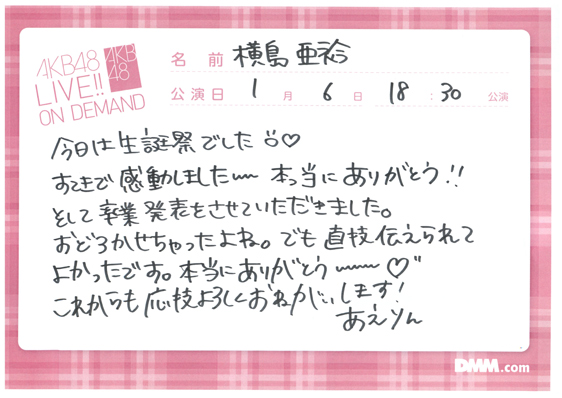 AKB48
LIVE!!
ON DEMAND
AKB
48
名前 横島亜衿
公演日 1月 6日 18:30 公演
今日は生誕祭でした
すてきで感動しました〰 本当にありがとう!!
そして卒業発表をさせていただきました。
おどろかせちゃったよね。でも直接伝えられて
よかったです。本当にありがとう〰〰♡"
これからも応援よろしくおねがいします!
あえりん
DMM.com